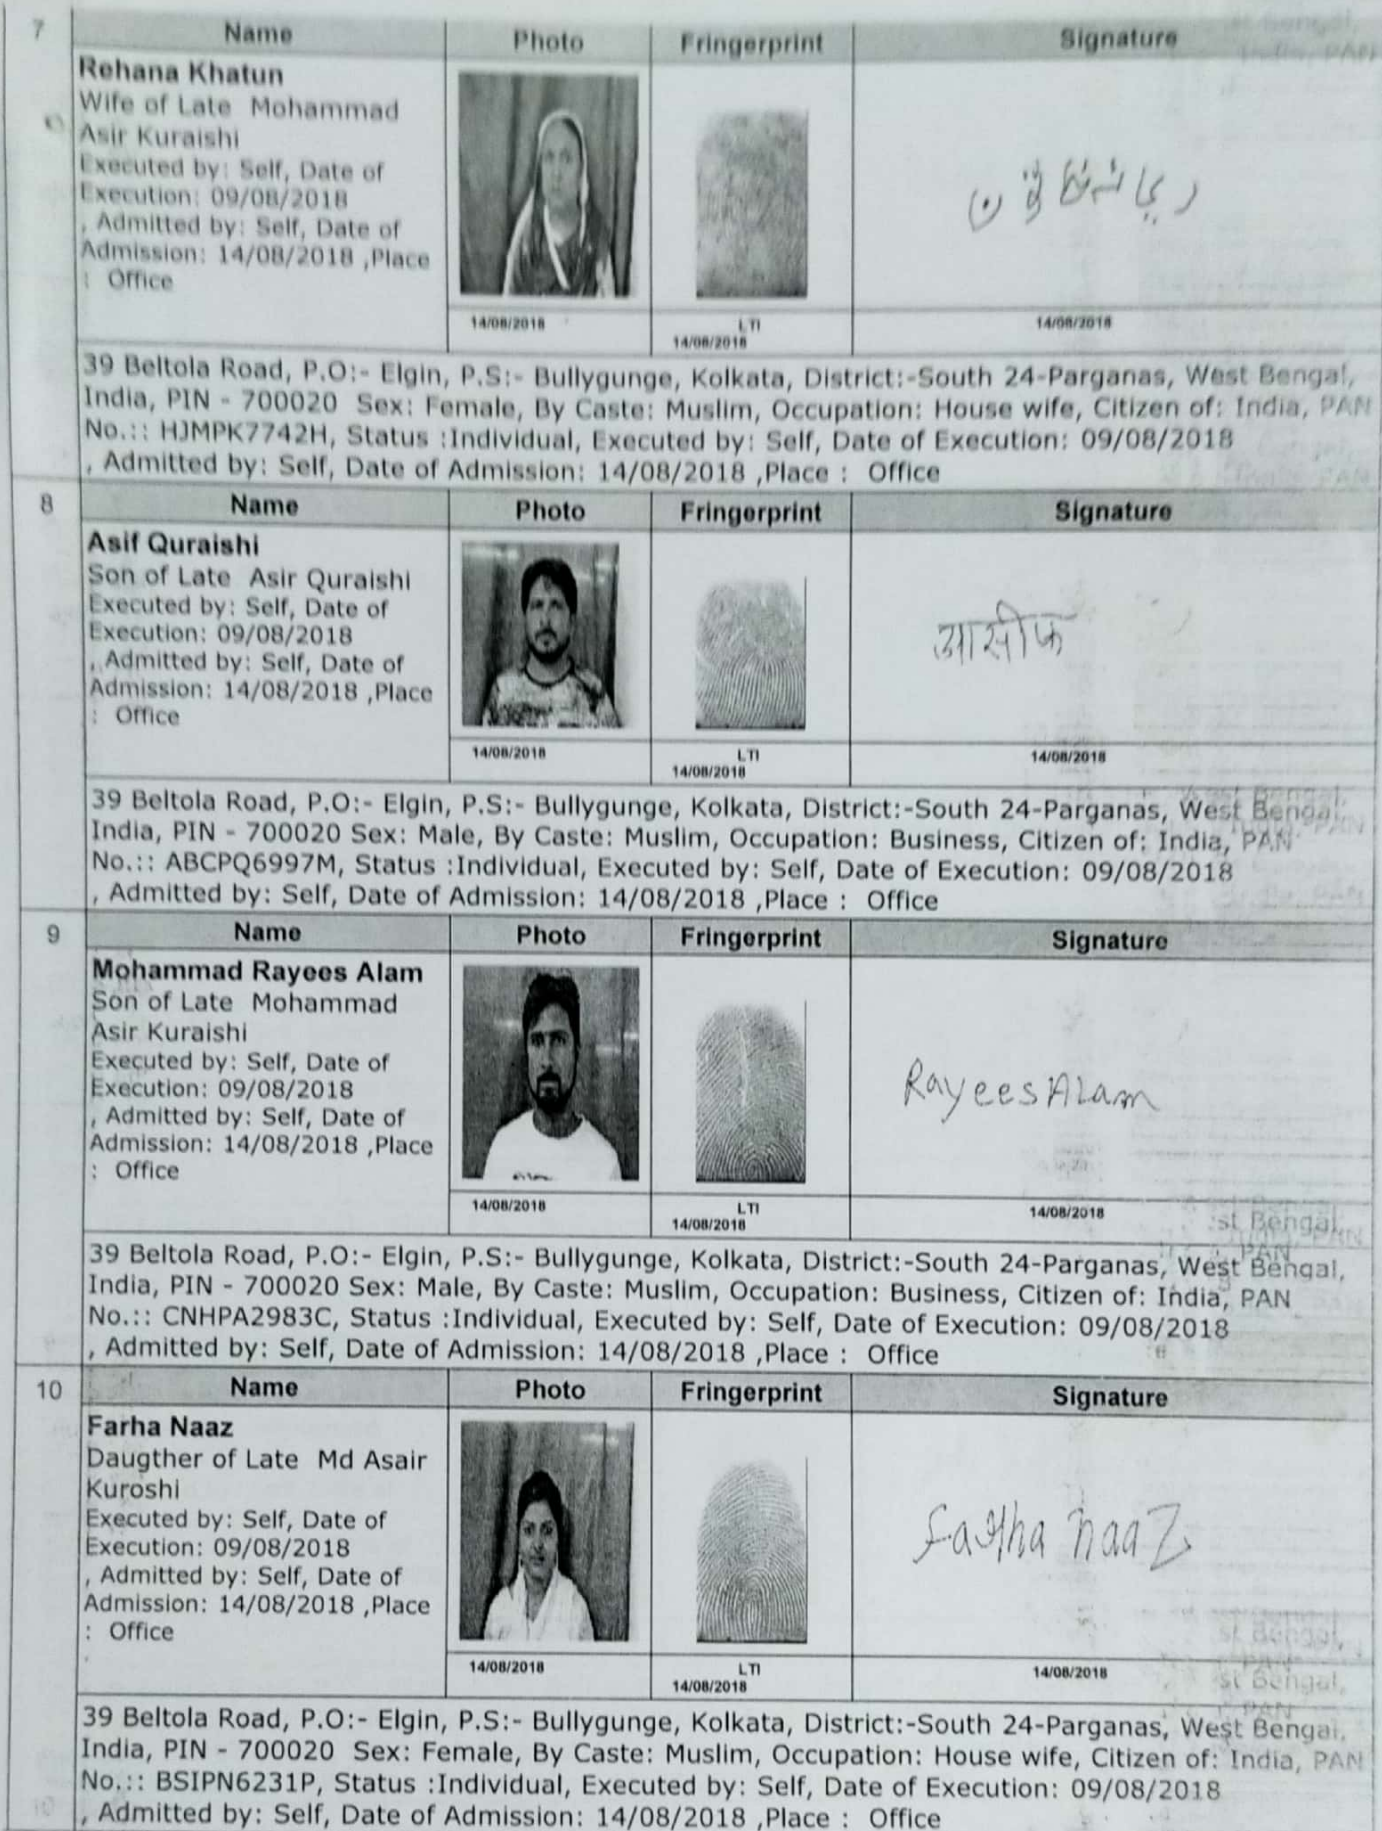 7
Name Photo Fringerprint Signature
Rehana Khatun
Wife of Late Mohammad
Asir Kuraishi
Executed by: Self, Date of
Execution: 09/08/2018
, Admitted by: Self, Date of
Admission: 14/08/2018 ,Place
: Office
ریحانہ خاتون
14/08/2018 LTI 14/08/2018
14/08/2018
39 Beltola Road, P.O:- Elgin, P.S:- Bullygunge, Kolkata, District:-South 24-Parganas, West Bengal,
India, PIN - 700020 Sex: Female, By Caste: Muslim, Occupation: House wife, Citizen of: India, PAN
No.:: HJMPK7742H, Status :Individual, Executed by: Self, Date of Execution: 09/08/2018
, Admitted by: Self, Date of Admission: 14/08/2018 ,Place : Office
8
Name Photo Fringerprint Signature
Asif Quraishi
Son of Late Asir Quraishi
Executed by: Self, Date of
Execution: 09/08/2018
, Admitted by: Self, Date of
Admission: 14/08/2018 ,Place
: Office
आसीफ
14/08/2018 LTI 14/08/2018
14/08/2018
39 Beltola Road, P.O:- Elgin, P.S:- Bullygunge, Kolkata, District:-South 24-Parganas, West Bengal,
India, PIN - 700020 Sex: Male, By Caste: Muslim, Occupation: Business, Citizen of: India, PAN
No.:: ABCPQ6997M, Status :Individual, Executed by: Self, Date of Execution: 09/08/2018
, Admitted by: Self, Date of Admission: 14/08/2018 ,Place : Office
9
Name Photo Fringerprint Signature
Mohammad Rayees Alam
Son of Late Mohammad
Asir Kuraishi
Executed by: Self, Date of
Execution: 09/08/2018
, Admitted by: Self, Date of
Admission: 14/08/2018 ,Place
: Office
Rayees Alam
14/08/2018 LTI 14/08/2018
14/08/2018
39 Beltola Road, P.O:- Elgin, P.S:- Bullygunge, Kolkata, District:-South 24-Parganas, West Bengal,
India, PIN - 700020 Sex: Male, By Caste: Muslim, Occupation: Business, Citizen of: India, PAN
No.:: CNHPA2983C, Status :Individual, Executed by: Self, Date of Execution: 09/08/2018
, Admitted by: Self, Date of Admission: 14/08/2018 ,Place : Office
10
Name Photo Fringerprint Signature
Farha Naaz
Daugther of Late Md Asair
Kuroshi
Executed by: Self, Date of
Execution: 09/08/2018
, Admitted by: Self, Date of
Admission: 14/08/2018 ,Place
: Office
Farha naaz
14/08/2018 LTI 14/08/2018
14/08/2018
39 Beltola Road, P.O:- Elgin, P.S:- Bullygunge, Kolkata, District:-South 24-Parganas, West Bengal,
India, PIN - 700020 Sex: Female, By Caste: Muslim, Occupation: House wife, Citizen of: India, PAN
No.:: BSIPN6231P, Status :Individual, Executed by: Self, Date of Execution: 09/08/2018
, Admitted by: Self, Date of Admission: 14/08/2018 ,Place : Office